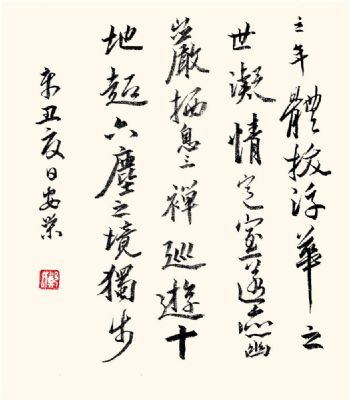 之年體拔浮華之
世凝情定室匿迹幽
巖栖息三禪巡遊十
地超六塵之境獨步
辛丑夏日安荣